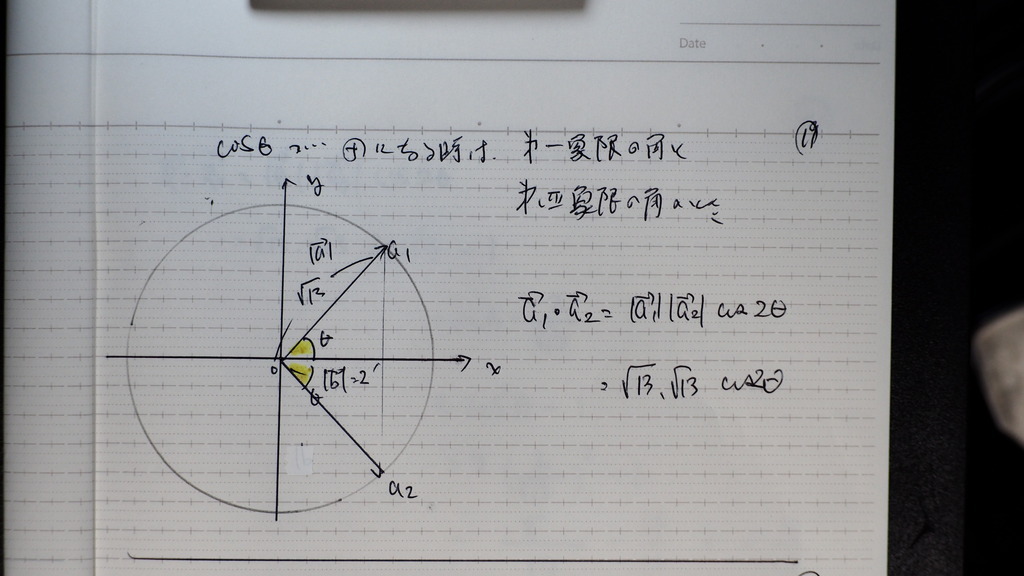 Date
⑲
cosθ が… ⊕になる時は、第一象限の角と
第四象限の角のとき
y
|a⃗|
a₁
√13
θ
x
0
|b⃗|=2
θ
a₂
a⃗₁・a⃗₂= |a⃗₁||a⃗₂| cos 2θ
= √13、√13 cos2θ